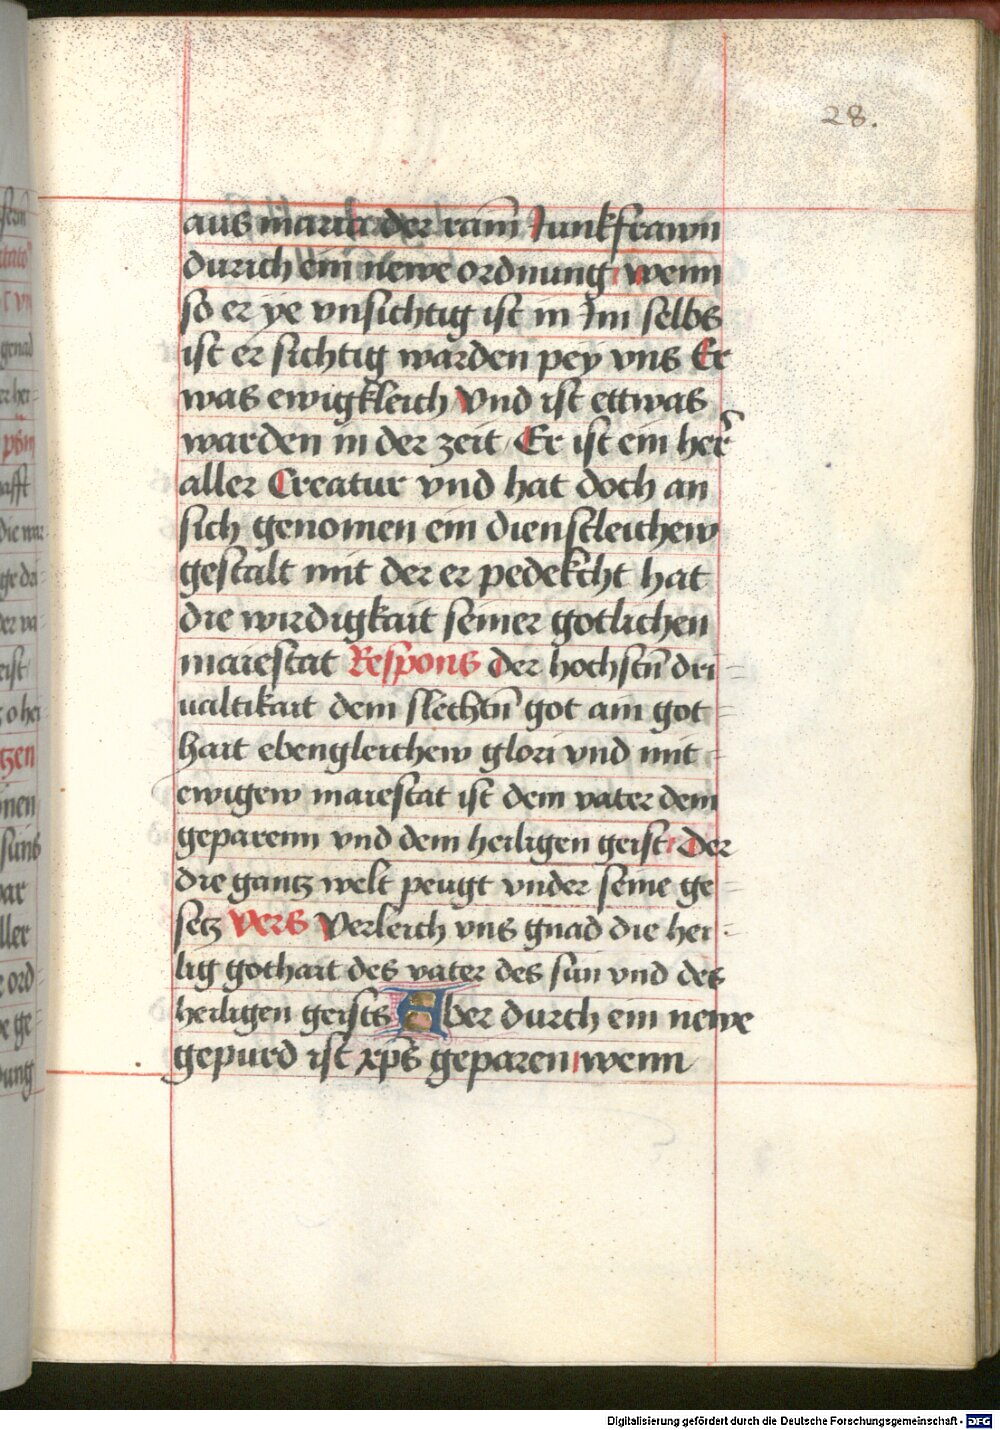 28.
aus maria der rain̄ Junkfrawn
durich ein newe ordnung wenn
so er ye vnsichtig ist in Im selbs
ist er sichtig warden pey vns Er
was ewigkleich Vnd ist ettwas
warden in der zeit Er ist ein her̄
aller Creatur vnd hat doch an
sich genomen ein dienstleichew
gestalt mit der er pedekcht hat
die wirdigkait seiner gotlichen
maiestat Respons der hochstn̄ dri-
ualtikait dem slechtn̄ got ain got-
hait ebengleichew glori vnd mit-
ewigew maiestat ist dem vater dem
geparenn vnd dem heiligen geist Der
die gantz welt peugt vnder seine ge-
setz Vers Verleich vns gnad die hei-
lig gothait des vater des sun vnd des
heiligen geists Aber durch ein newe
gepurd ist xp̄s geparen wenn
Digitalisierung gefördert durch die Deutsche Forschungsgemeinschaft - DFG